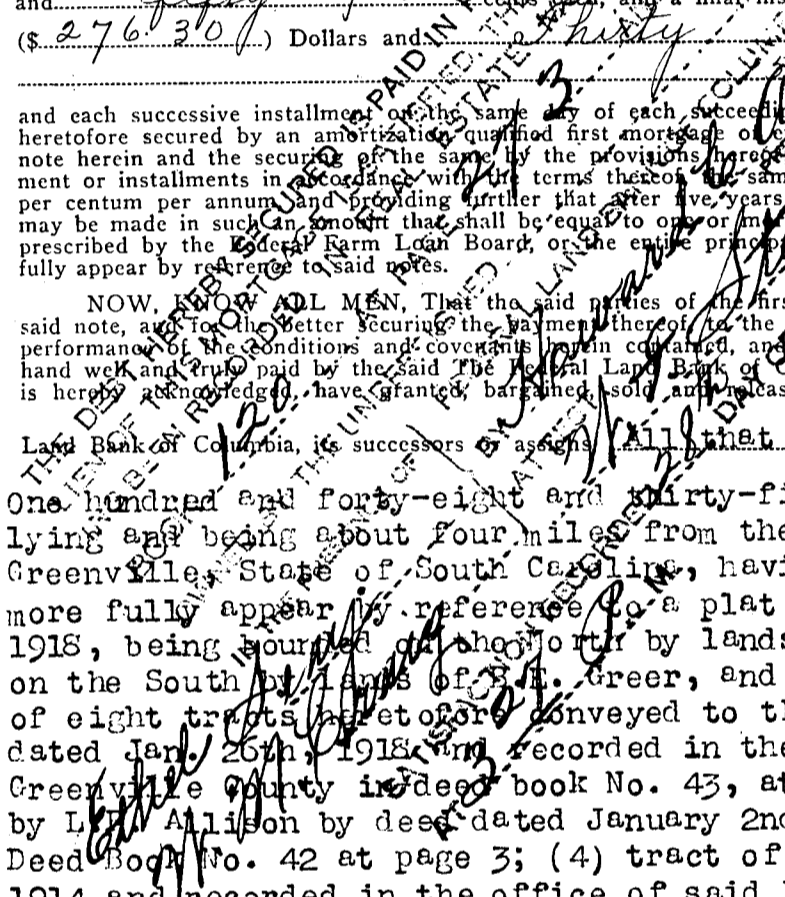 and
($ 276.30) Dollars and Thirty
and each successive installment on the same day of each succeedi
heretofore secured by an amortization qualified first mortgage of
note herein and the securing of the same by the provisions hereof
ment or installments in accordance with the terms thereof, the sam
per centum per annum, and providing further that after five years
may be made in such an amount that shall be equal to one or m
prescribed by the Federal Farm Loan Board, or the entire princip
fully appear by reference to said notes.
NOW, KNOW ALL MEN, That the said parties of the firs
said note, and for the better securing the payment thereof to the
performance of the conditions and covenants herein contained, and
hand well and truly paid by the said The Federal Land Bank of
is hereby acknowledged, have granted, bargained, sold and releas
Land Bank of Columbia, its successors or assigns, All that
One hundred and forty-eight and thirty-fi
lying and being about four miles from the
Greenville, State of South Carolina, havi
more fully appear by reference to a plat
1918, being bounded on the North by lands
on the South by lands of B.E. Greer, and
of eight tracts heretofore conveyed to th
dated Jan. 26th, 1918 and recorded in the
Greenville County in deed book No. 43, at
by L. Allison by deed dated January 2nd
Deed Book No. 42 at page 3; (4) tract of
1914 and recorded in the office of said
THE DEBT HEREBY SECURED IS PAID IN
LIEN OF THIS MORTGAGE IS SATISFIED, THIS
BEEN RECORDED IN REAL ESTATE
BOOK 120 AT PAGE 273
THE UNDERSIGNED
FEDERAL LAND BANK OF COLUMBIA
BY Howard
ATTEST
IN THE PRESENCE OF
Ethel
SATISFACTION RECORDED 28th DAY OF
AT 3:27 P. M.